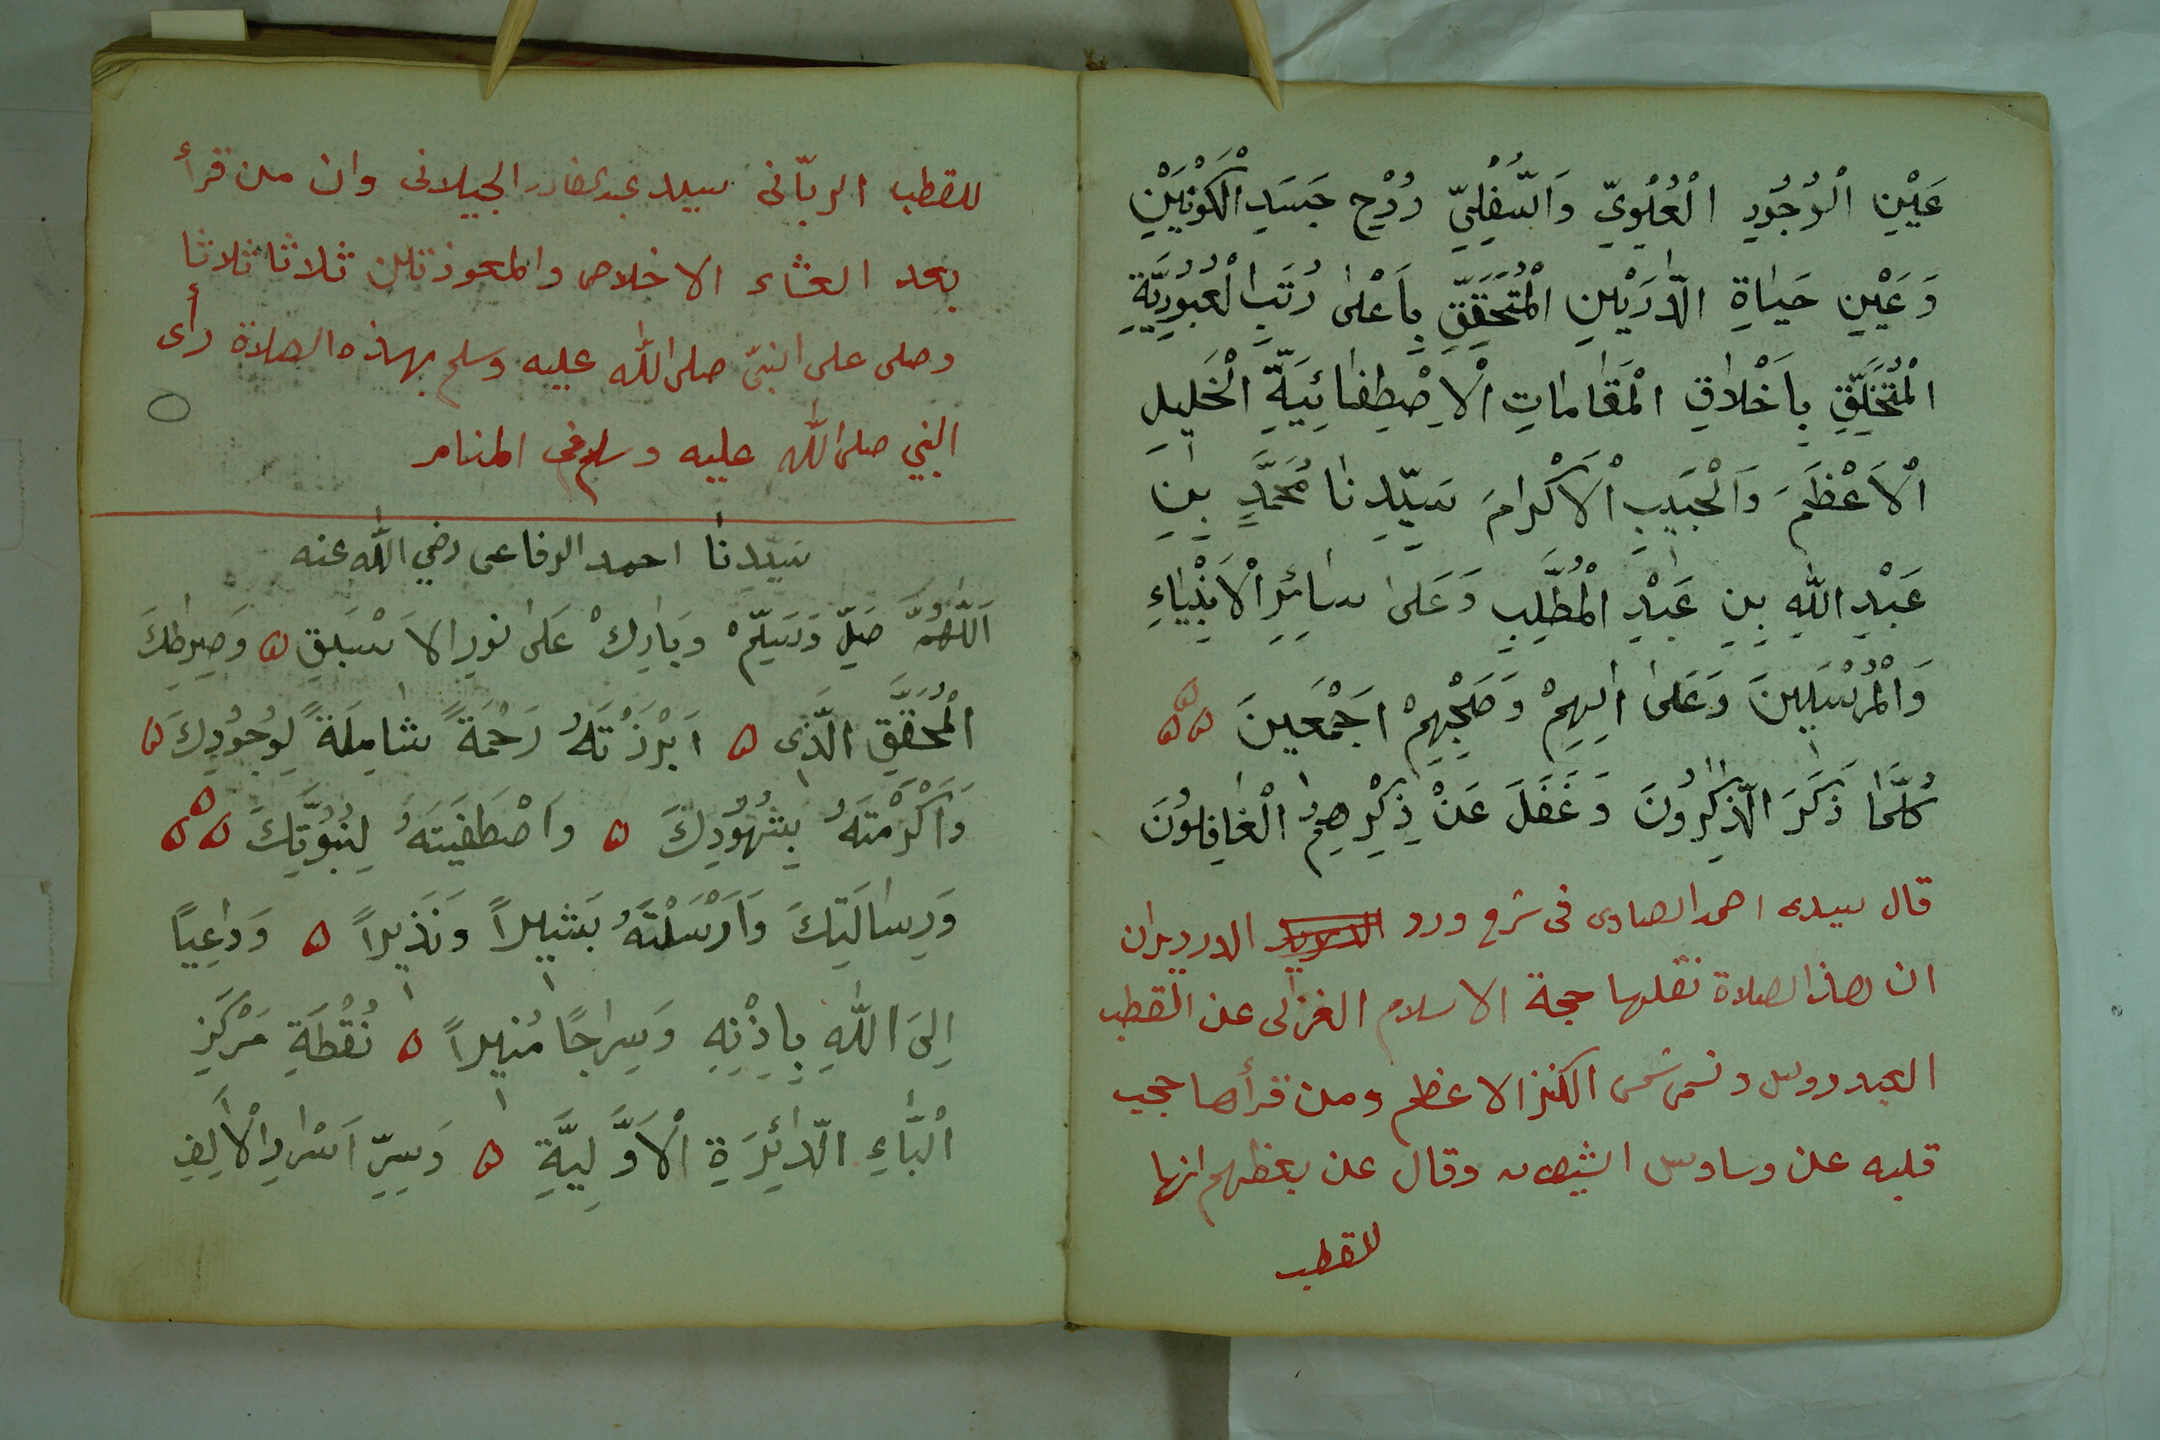 عَيْنِ الْوُجُودِ الْعُلْوِيِّ وَالسُّفْلِيِّ رُوْحِ جَسَدِ الْكَوْنَيْنِ
وَعَيْنِ حَيٰاةِ الدّٰارَيْنِ الْمُتَحَقِّقِ بِاَعْلٰى رُتَبِ الْعُبُودِيَّةِ
الْمُتَخَلِّقِ بِاَخْلٰاقِ الْمَقٰامٰاتِ الْاِصْطِفٰائِيَّةِ الْخَلِيلِ
الْاَعْظَمَ وَالْحَبِيبِ الْاَكْرٰامَ سَيِّدِنٰا مُحَمَّدٍ بْنِ
عَبْدِ اللّٰهِ بِنِ عَبْدِ الْمُطَّلِبِ وَعَلٰى سٰائِرِ الْاَنْبِيٰاءِ
وَالْمُرْسَلِينَ وَعَلٰى اٰلِهِمْ وَصَحْبِهِمْ اَجْمَعِينَ ۵ ۵ ۵
كُلَّمٰا ذَكَرَ الذّٰاكِرُونَ وَغَفَلَ عَنْ ذِكْرِهِمُ الْغٰافِلُونَ
قال سيدى احمد الصاوى فى شرح ورد الدرديران
ان هاذا الصلاة نقلها حجة الاسلام الغزالى عن القطب
العيدروس وتسمى شمس الكنز الاعظم ومن قرأها حجب
قلبه عن وساوس الشيطان وقال عن بعظهم انها
للقطب
للقطب الربّانى سيد عبد القادر الجيلانى وان من قرأ
بعد العشاء الاخلاص والمعوذتين ثلاثا ثلاثا
وصلى على النبىّ صلى اللّٰه عليه وسلم بهذه الصلاة رأى
النبي صلى اللّٰه عليه وسلم فى المنام
سَيِّدِنٰا احمد الرفاعى رضي اللّٰه عنه
اَللّٰهُمَّ صَلِّ وَسَلِّمْ وَبٰارِكْ عَلٰى نورِ الاَسْبَقِ ۵ وَصِرٰطِكَ
الْمُحَقَّقِ الَّذِى ۵ اَبْرَزْتَهُ رَحْمَةً شٰامِلَةً لِوُجُودِكَ ۵
وَاَكْرَمْتَهُ بِشُهُوْدِكَ ۵ وَاَصْطَفَيْتَهُ لِنُبُوَّتِكَ ۵ ۵ ۵
وَرِسٰالَتِكَ وَاَرْسَلْتَهُ بَشِيراً وَنَذِيراً ۵ وَدٰاعِيًا
اِلىَ اللّٰهِ بِاِذْنِهِ وَسِرٰاجًا مُنِيراً ۵ نُقْطَةِ مَرْكَزِ
الْبٰاءِ الدّٰائِرَةِ الْاَوَّلِيَّةِ ۵ وَسِرِّ اَسْرٰارِ الْاَلِفِ